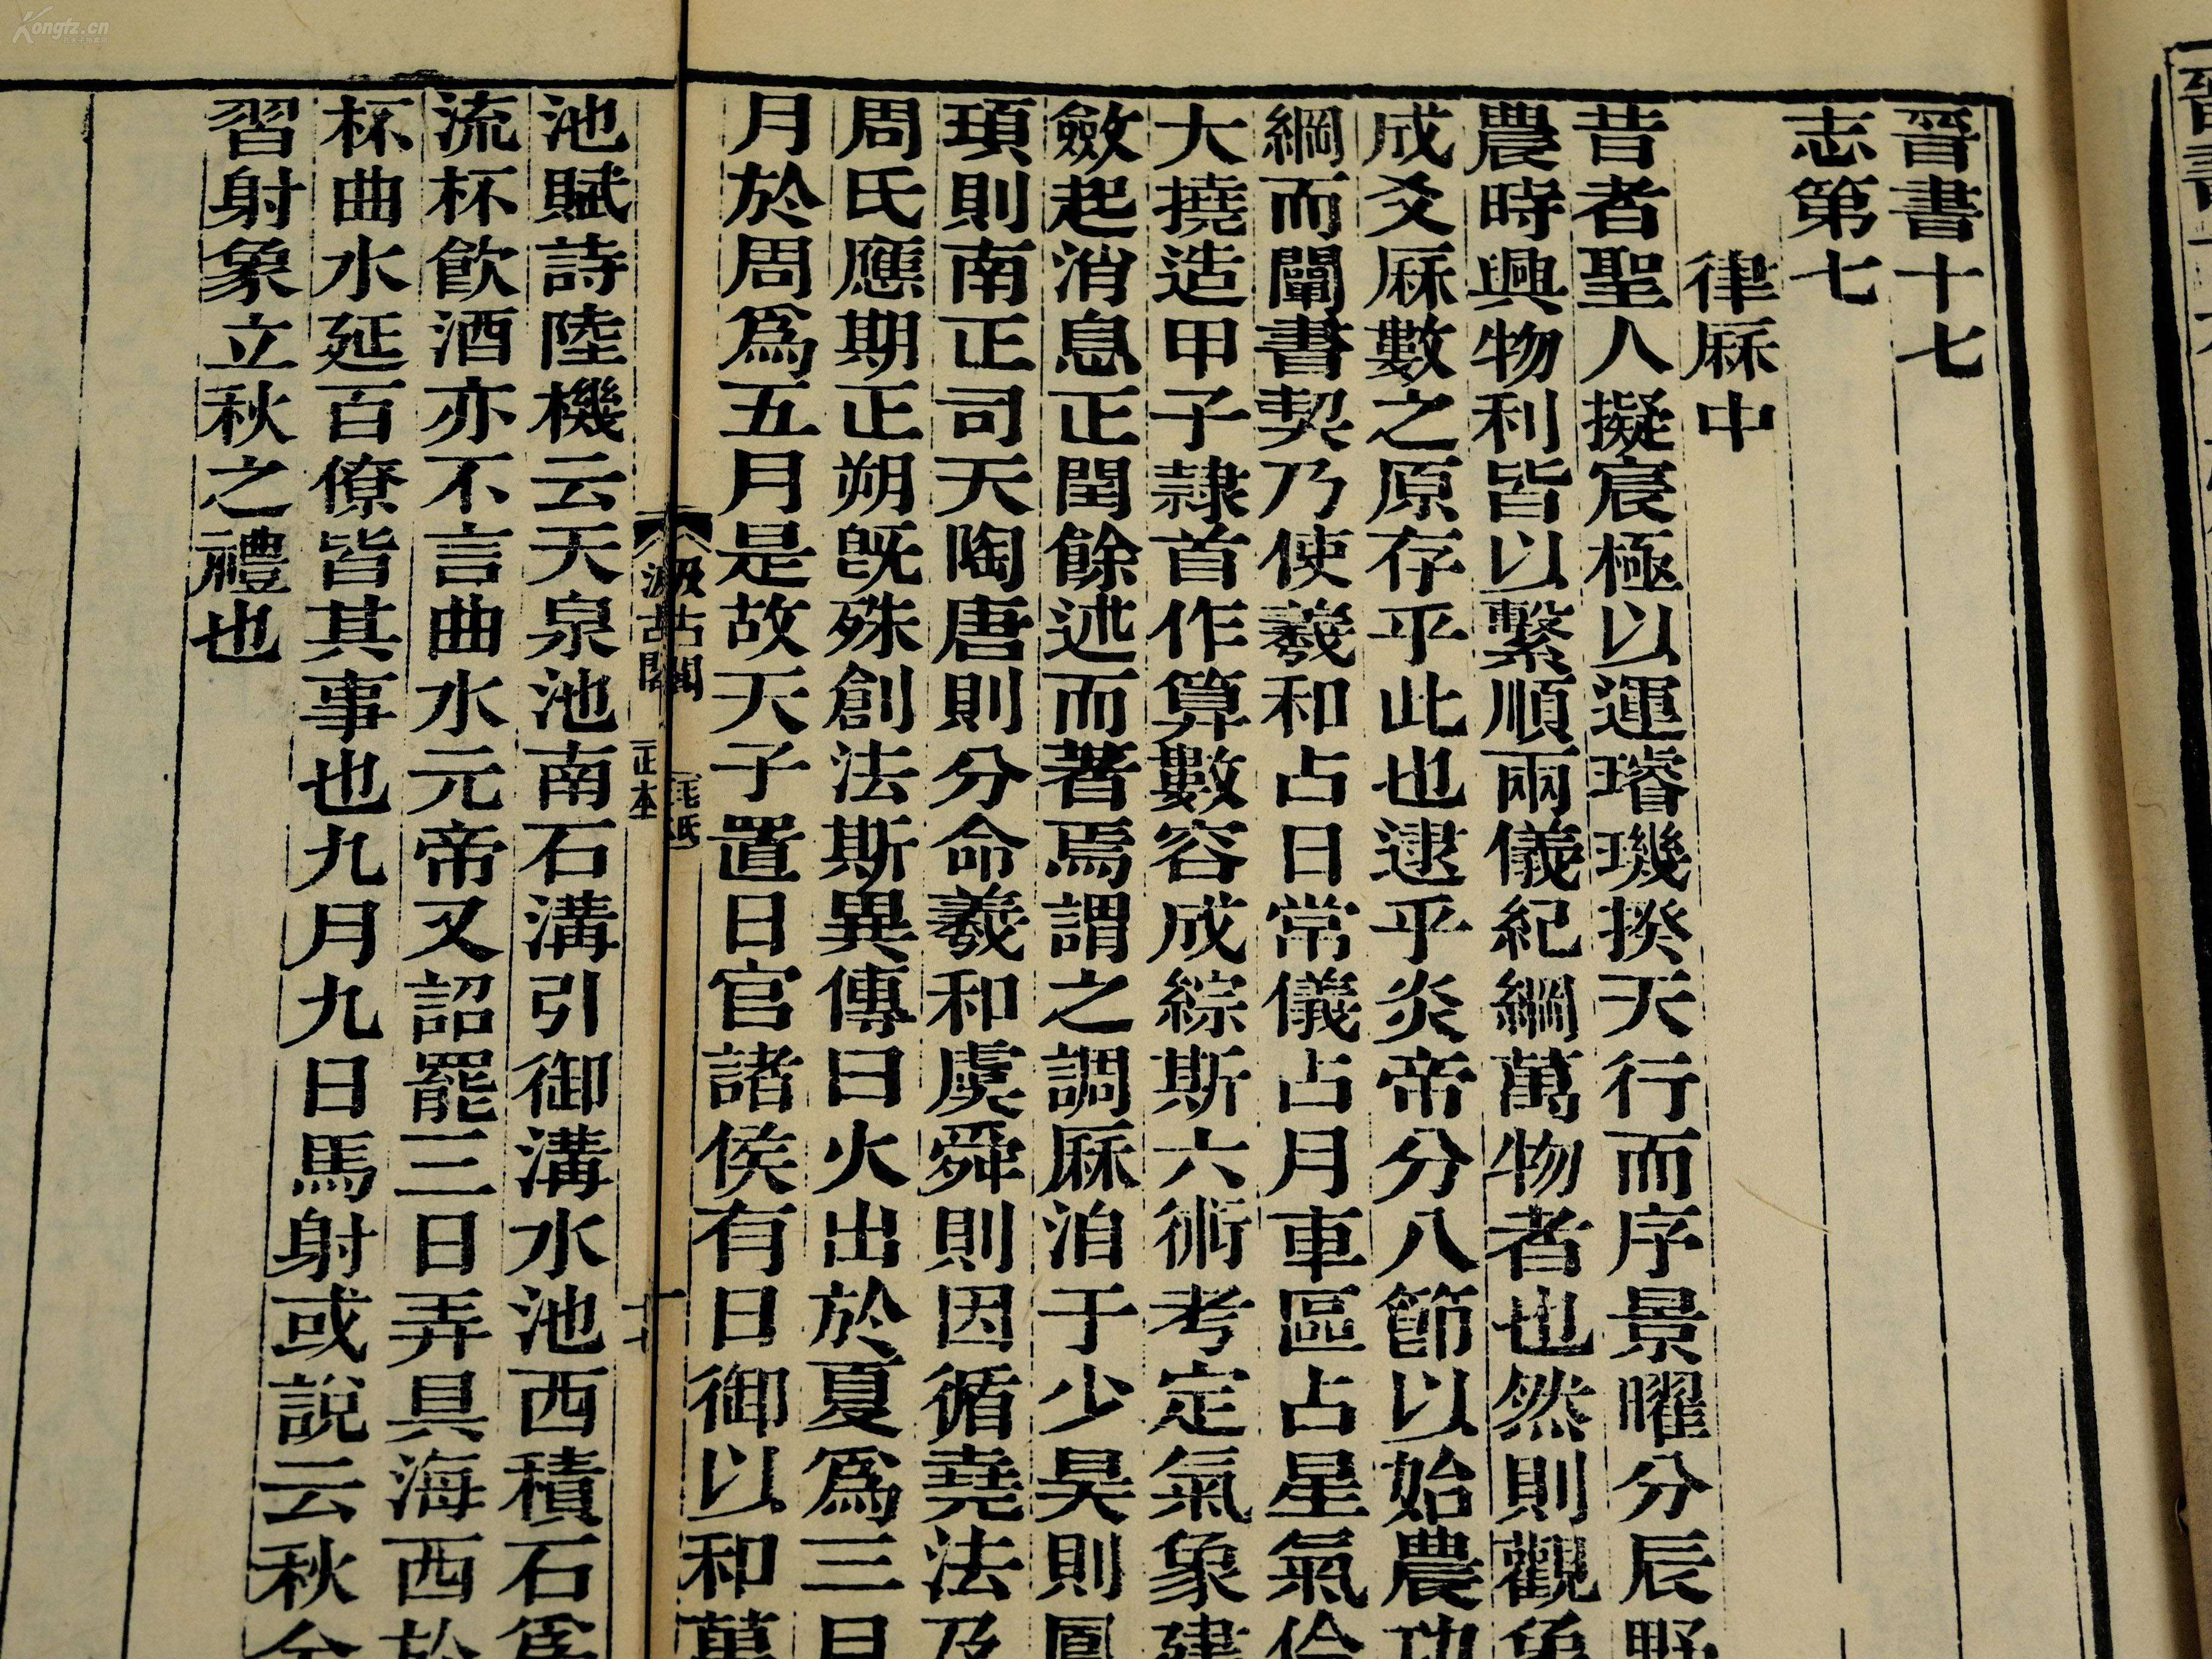 晉書十七
志第七
律厤中
昔者聖人擬宸極以運璿璣揆天行而序景曜分辰野
農時興物利皆以繫順兩儀紀綱萬物者也然則觀象
成爻厤數之原存乎此也逮乎炎帝分八節以始農功
綱而闡書契乃使羲和占日常儀占月車區占星氣伶
大撓造甲子隷首作算數容成綜斯六術考定氣象建
斂起消息正閏餘述而著焉謂之調厤洎于少昊則鳳
頊則南正司天陶唐則分命羲和虞舜則因循堯法及
周氏應期正朔旣殊創法斯異傳曰火出於夏爲三月
月於周爲五月是故天子置日官諸侯有日御以和萬
汲古閣
毛氏
正本
池賦詩陸機云天泉池南石溝引御溝水池西積石爲
流杯飮酒亦不言曲水元帝又詔罷三日弄具海西於
杯曲水延百僚皆其事也九月九日馬射或說云秋金
習射象立秋之禮也
Kongfz.cn